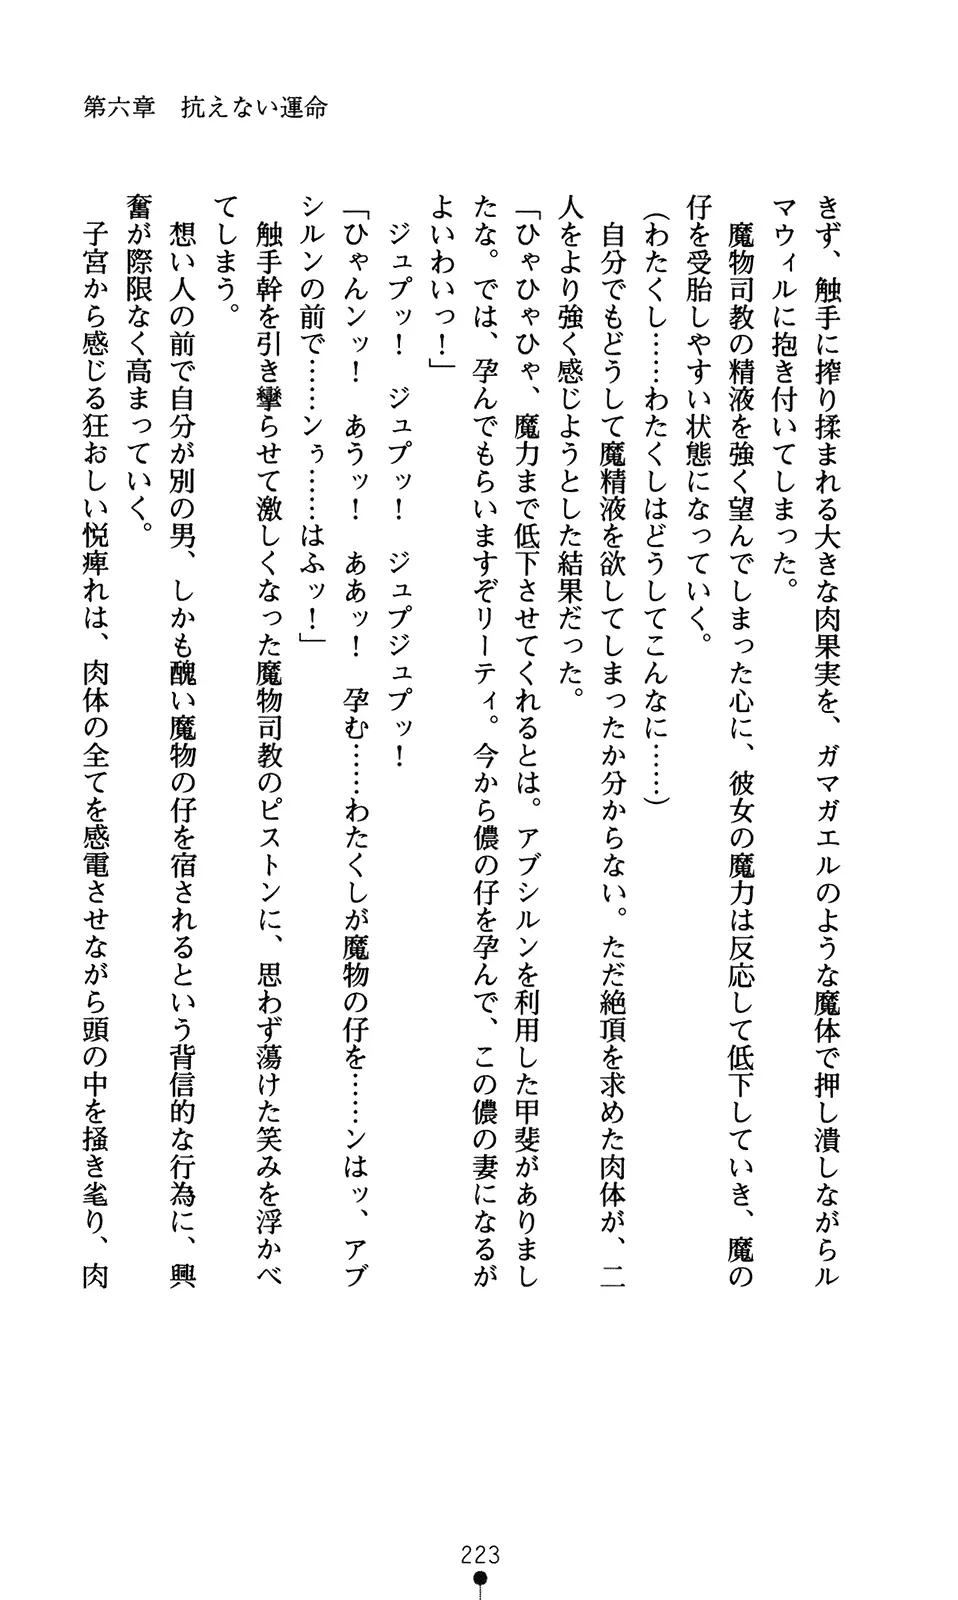 第六章　抗えない運命
きず、触手に搾り揉まれる大きな肉果実を、ガマガエルのような魔体で押し潰しながらル
マウィルに抱き付いてしまった。
　魔物司教の精液を強く望んでしまった心に、彼女の魔力は反応して低下していき、魔の
仔を受胎しやすい状態になっていく。
（わたくし……わたくしはどうしてこんなに……）
　自分でもどうして魔精液を欲してしまったか分からない。ただ絶頂を求めた肉体が、二
人をより強く感じようとした結果だった。
「ひゃひゃひゃ、魔力まで低下させてくれるとは。アブシルンを利用した甲斐がありまし
たな。では、孕んでもらいますぞリーティ。今から儂の仔を孕んで、この儂の妻になるが
よいわいっ！」
　ジュプッ！　ジュプッ！　ジュプジュプッ！
「ひゃんンッ！　あうッ！　ああッ！　孕む……わたくしが魔物の仔を……ンはッ、アブ
シルンの前で……ンぅ……はふッ！」
　触手幹を引き攣らせて激しくなった魔物司教のピストンに、思わず蕩けた笑みを浮かべ
てしまう。
　想い人の前で自分が別の男、しかも醜い魔物の仔を宿されるという背信的な行為に、興
奮が際限なく高まっていく。
　子宮から感じる狂おしい悦痺れは、肉体の全てを感電させながら頭の中を掻き毟り、肉
223